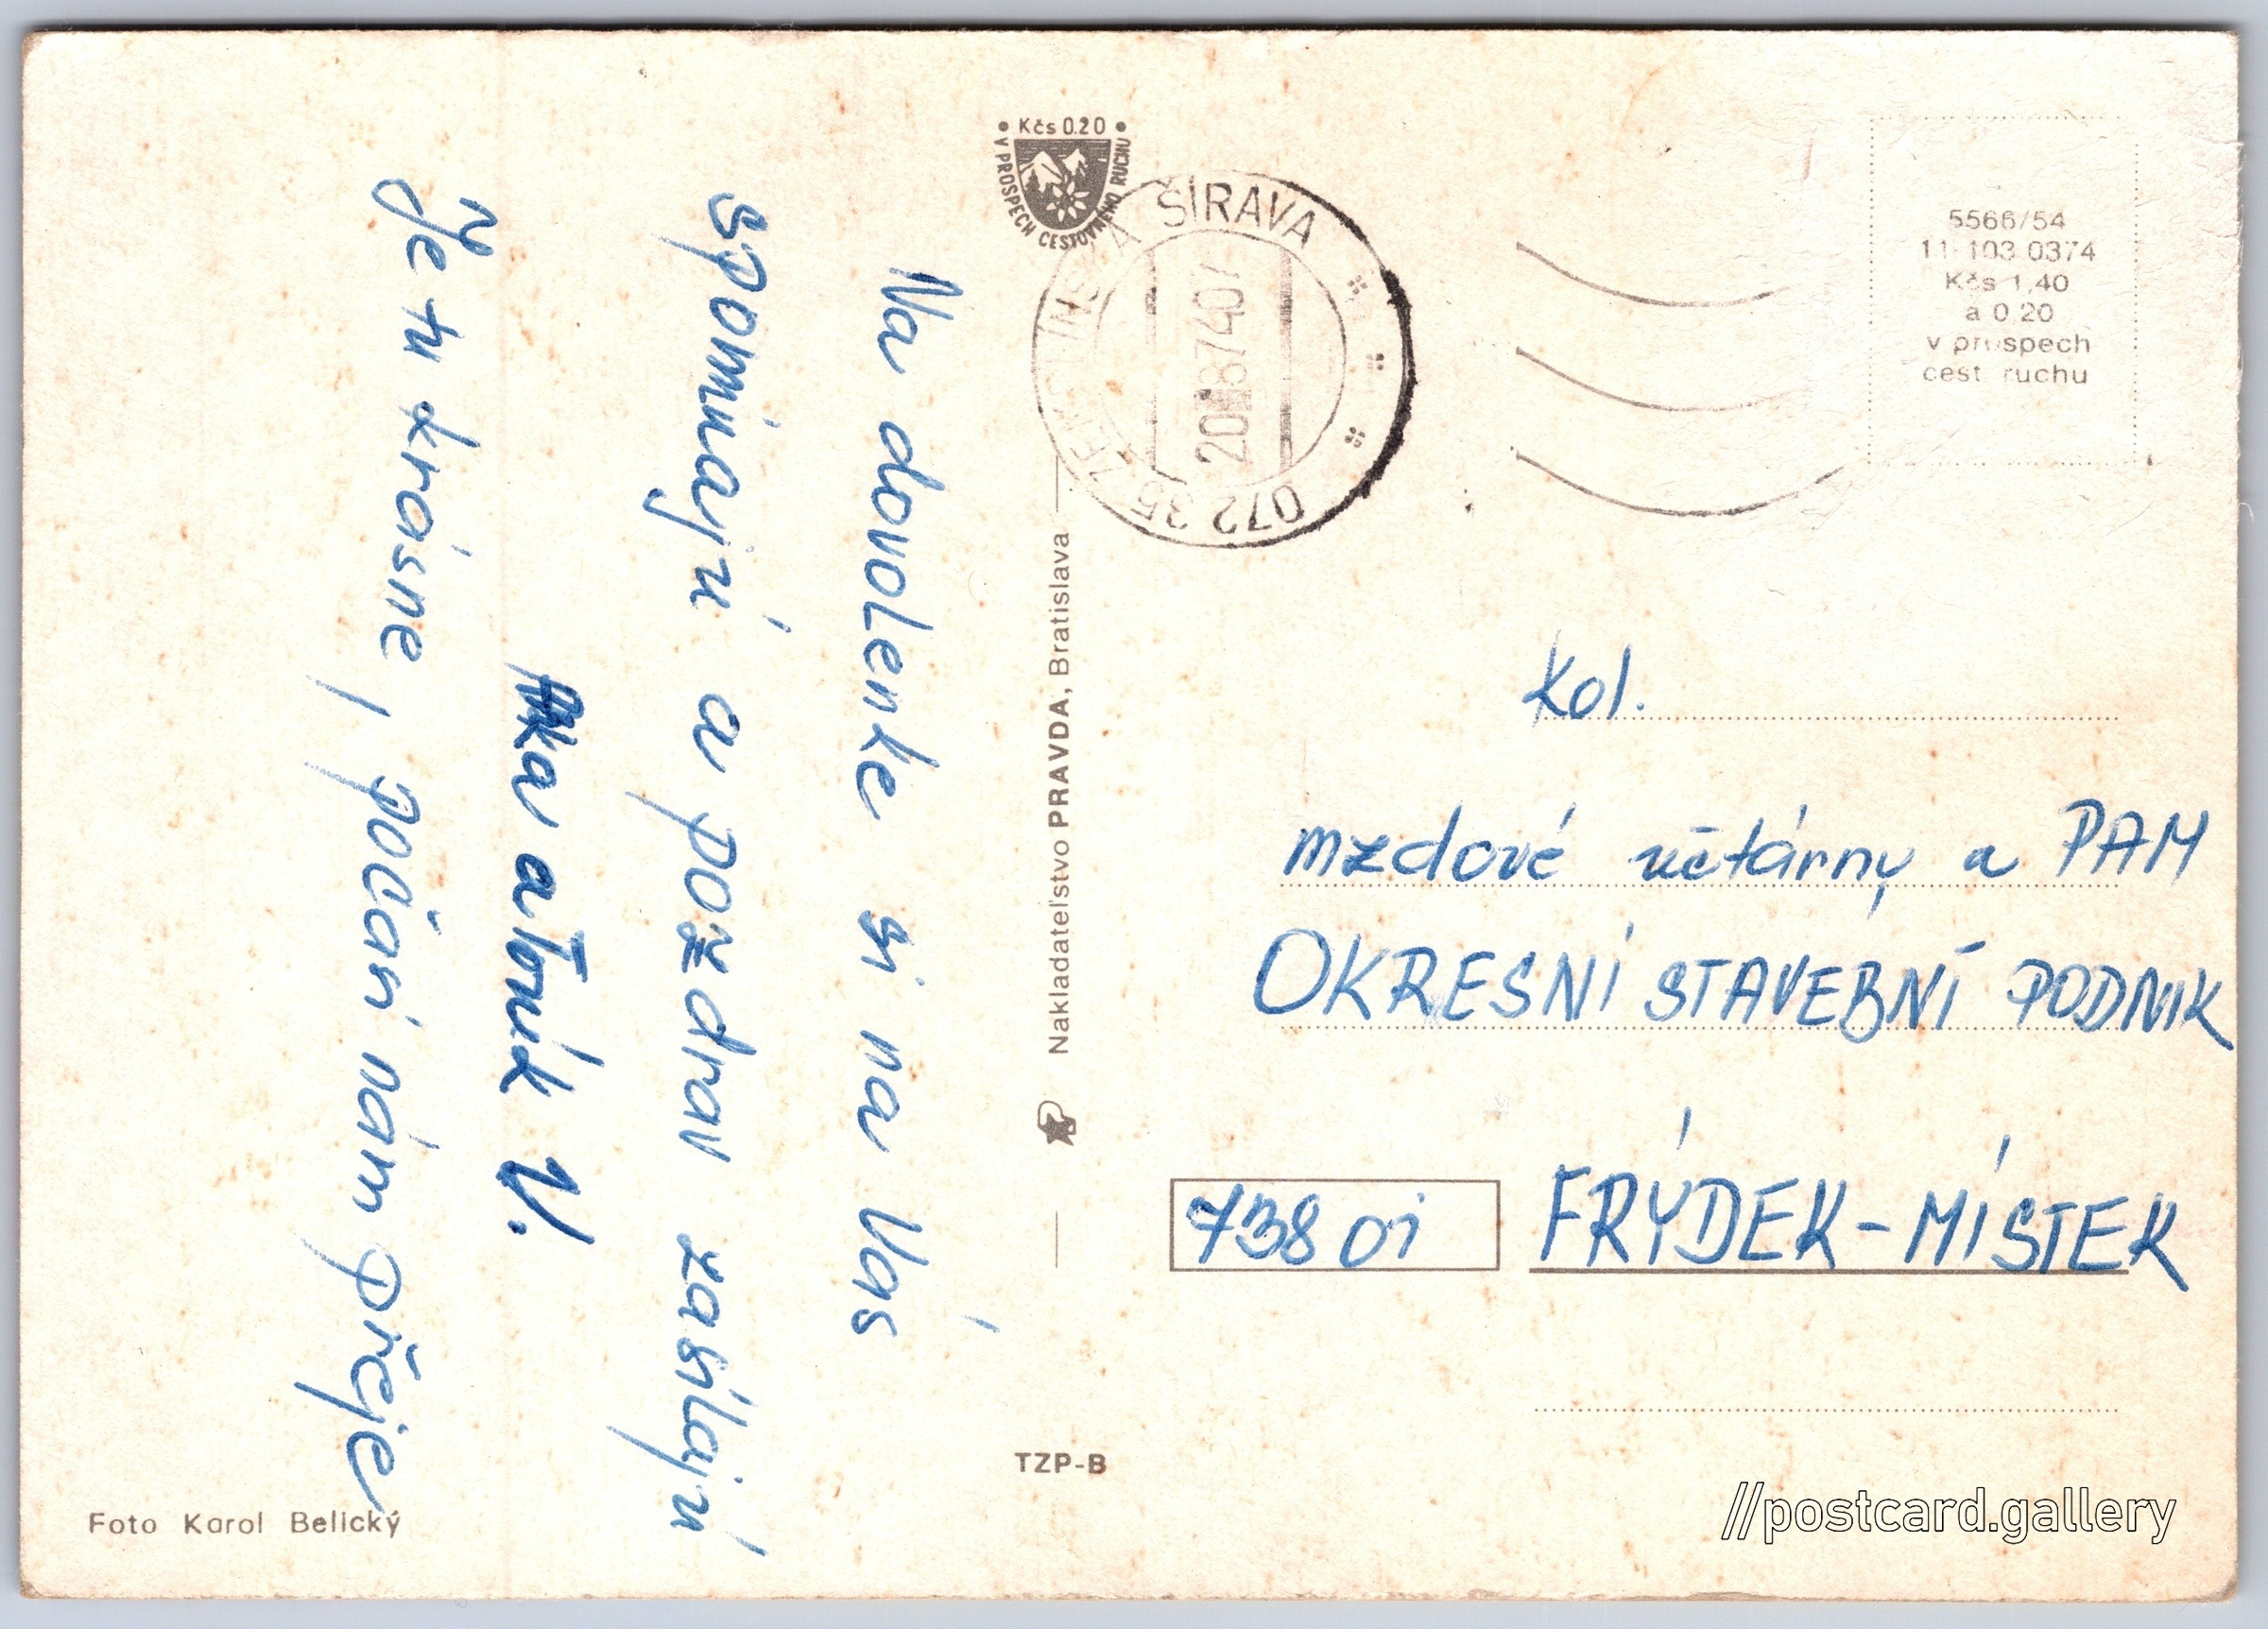 Na dovolenke si na Vás
spomínajú a pozdrav zasílajú
a Toník V.
Je tu krásne, počasí nám přeje
Foto Karol Belický
• Kčs 0.20 •
V PROSPECH CESTOVNÉHO RUCHU
ZEMPLÍNSKA ŠÍRAVA
87
072 35
Nakladateľstvo PRAVDA, Bratislava
TZP-B
5566/54
11 103 0374
Kčs 1,40
a 0 20
v prospech
cest ruchu
Kol.
mzdové účtárny a PAM
OKRESNÍ STAVEBNÍ PODNIK
738 01 FRÝDEK-MÍSTEK
//postcard.gallery